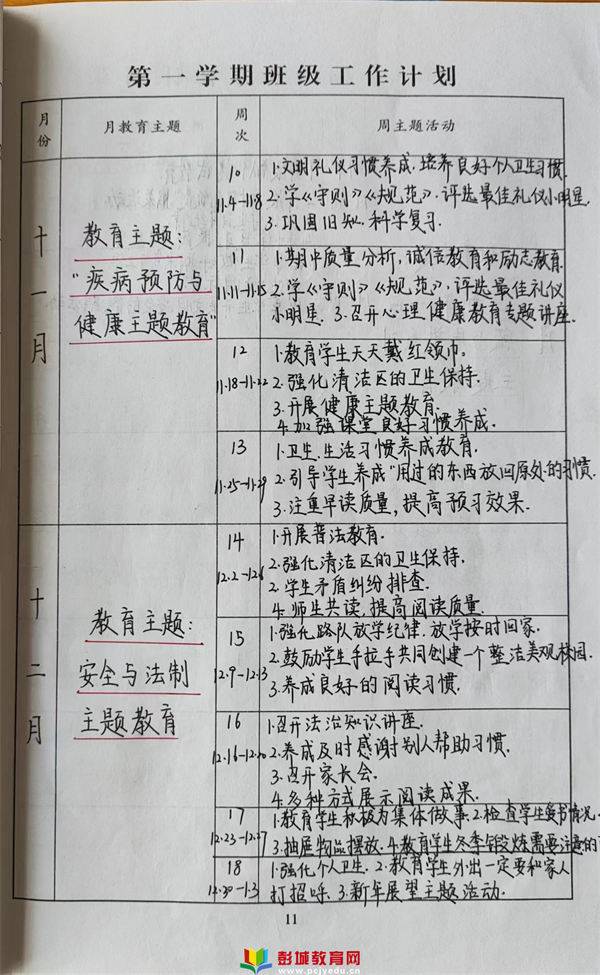 第一学期班级工作计划
月份 月教育主题 周次 周主题活动
十一月
教育主题:
"疾病预防与
健康主题教育"
10
11.4-11.8
1.文明礼仪习惯养成.培养良好个人卫生习惯.
2.学《守则》《规范》.评选最佳礼仪小明星.
3.巩固旧知.科学复习.
11
11.11-11.15
1.期中质量分析,诚信教育和励志教育.
2.学《守则》《规范》.评选最佳礼仪
小明星. 3.召开心理健康教育专题讲座.
12
11.18-11.22
1.教育学生天天戴红领巾.
2.强化清洁区的卫生保持.
3.开展健康主题教育.
4.加强课堂良好习惯养成.
13
11.25-11.29
1.卫生.生活习惯养成教育.
2.引导学生养成"用过的东西放回原处的习惯.
3.注重早读质量,提高预习效果.
十二月
教育主题:
安全与法制
主题教育
14
12.2-12.6
1.开展普法教育.
2.强化清洁区的卫生保持.
2.学生矛盾纠纷排查.
4.师生共读.提高阅读质量.
15
12.9-12.13
1.强化路队放学纪律.放学按时回家.
2.鼓励学生手拉手共同创建一个整洁美观校园.
3.养成良好的阅读习惯.
16
12.16-12.20
1.召开法治知识讲座.
2.养成及时感谢别人帮助习惯.
3.召开家长会.
4.多种方式展示阅读成果.
17
12.23-12.27
1.教育学生积极为集体做事.2.检查学生 书情况.
3.抽屉物品摆放.4.教育学生冬季锻炼需要注意的
18
12.30-1.3
1.强化个人卫生. 2.教育学生外出一定要和家人
打招呼. 3.新年展望主题活动.
11
彭城教育网
www.pcjyedu.cn